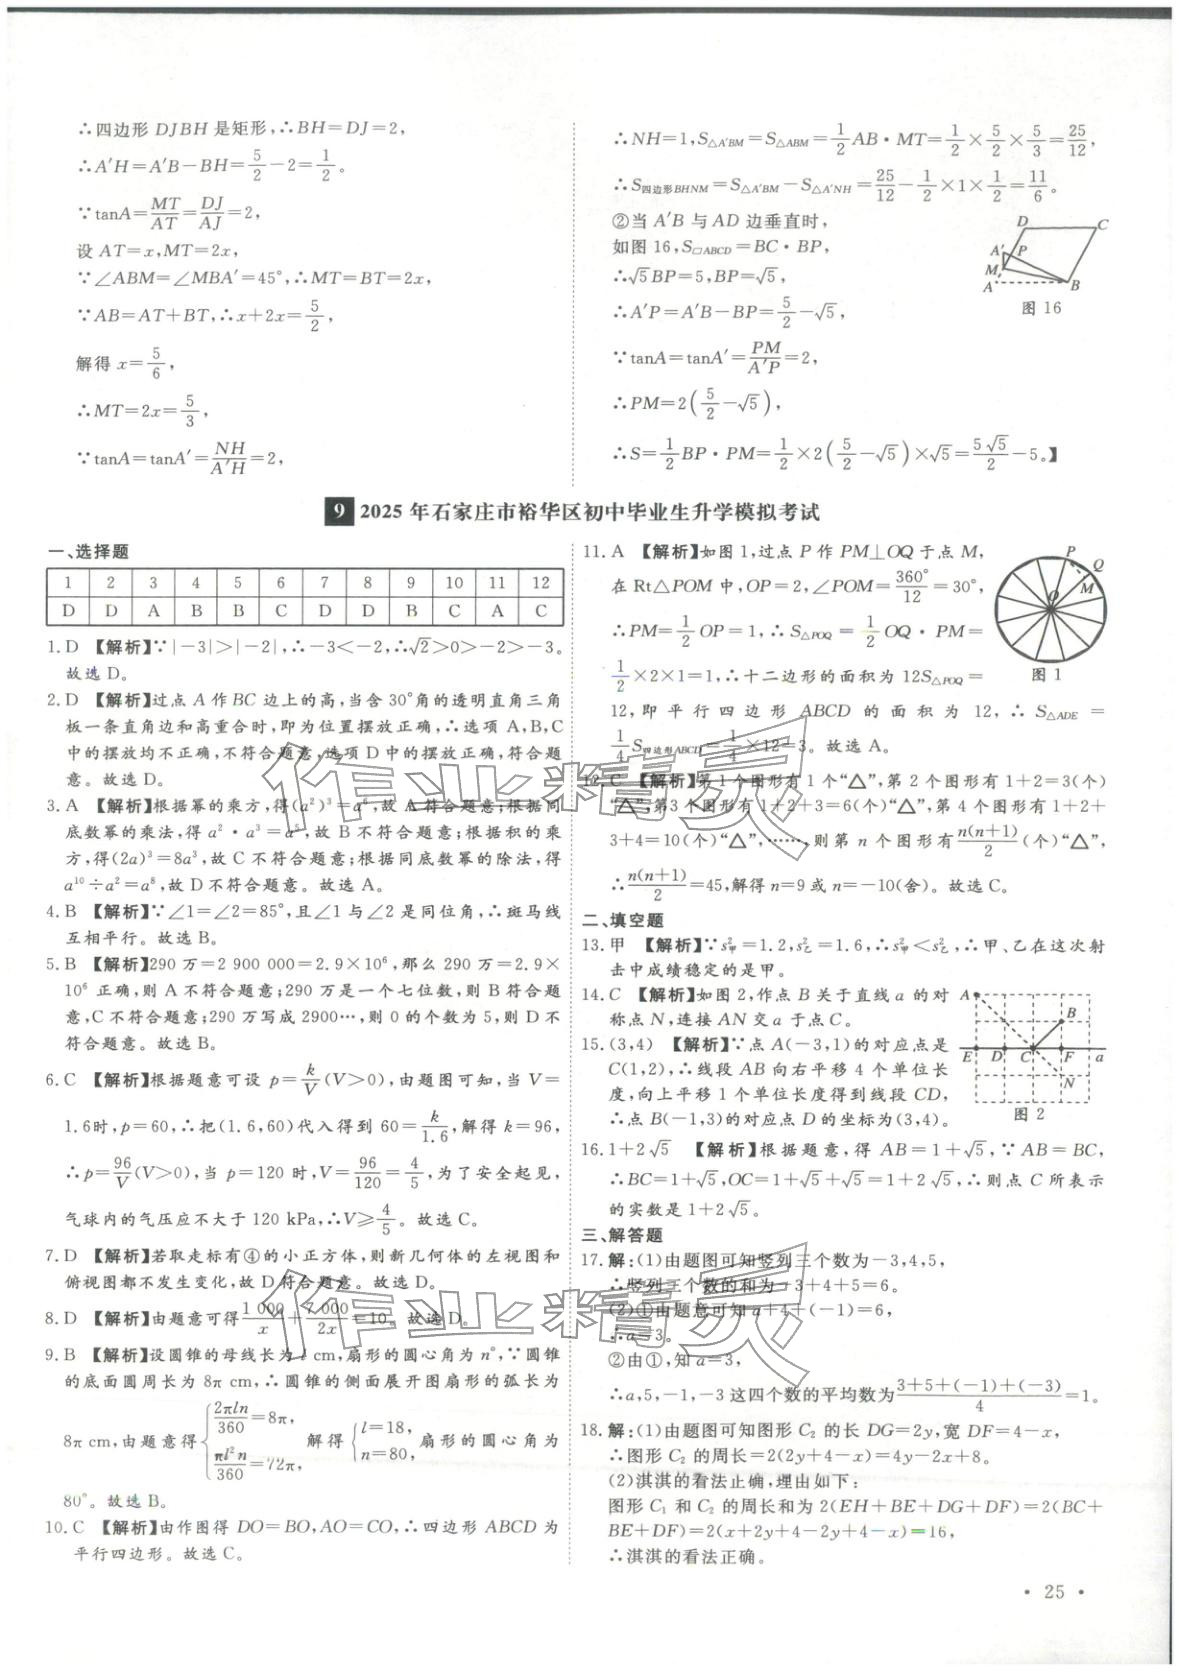 ∴四边形 DJBH 是矩形,∴BH=DJ=2,
∴A′H=A′B−BH=5/2−2=1/2。
∵tanA=MT/AT=DJ/AJ=2,
设 AT=x,MT=2x,
∵∠ABM=∠MBA′=45°,∴MT=BT=2x,
∵AB=AT+BT,∴x+2x=5/2,
解得 x=5/6,
∴MT=2x=5/3,
∵tanA=tanA′=NH/A′H=2,
∴NH=1,S△A′BM=S△ABM=1/2 AB·MT=1/2×5/2×5/3=25/12,
∴S四边形BHNM=S△A′BM−S△A′NH=25/12−1/2×1×1/2=11/6。
②当 A′B 与 AD 边垂直时,
如图 16,S□ABCD=BC·BP,
∴√5BP=5,BP=√5,
∴A′P=A′B−BP=5/2−√5,
∵tanA=tanA′=PM/A′P=2,
∴PM=2(5/2−√5),
∴S=1/2 BP·PM=1/2×2(5/2−√5)×√5=5√5/2−5。】
D C A′ P M A B
图 16
9 2025 年石家庄市裕华区初中毕业生升学模拟考试
一、选择题
1 2 3 4 5 6 7 8 9 10 11 12
D D A B B C D D B C A C
1. D 【解析】∵|−3|>|−2|,∴−3<−2,∴√2>0>−2>−3。
故选 D。
2. D 【解析】过点 A 作 BC 边上的高,当含 30°角的透明直角三角
板一条直角边和高重合时,即为位置摆放正确,∴选项 A,B,C
中的摆放均不正确,不符合题意,选项 D 中的摆放正确,符合题
意。故选 D。
3. A 【解析】根据幂的乘方,得(a²)³=a⁶,故 A 符合题意;根据同
底数幂的乘法,得 a²·a³=a⁵,故 B 不符合题意;根据积的乘
方,得(2a)³=8a³,故 C 不符合题意;根据同底数幂的除法,得
a¹⁰÷a²=a⁸,故 D 不符合题意。故选 A。
4. B 【解析】∵∠1=∠2=85°,且∠1 与∠2 是同位角,∴斑马线
互相平行。故选 B。
5. B 【解析】290 万=2 900 000=2.9×10⁶,那么 290 万=2.9×
10⁶ 正确,则 A 不符合题意;290 万是一个七位数,则 B 符合题
意,C 不符合题意;290 万写成 2900…,则 0 的个数为 5,则 D 不
符合题意。故选 B。
6. C 【解析】根据题意可设 p=k/V(V>0),由题图可知,当 V=
1.6时,p=60,∴把(1.6,60)代入得到 60=k/1.6,解得 k=96,
∴p=96/V(V>0),当 p=120 时,V=96/120=4/5,为了安全起见,
气球内的气压应不大于 120 kPa,∴V≥4/5。故选 C。
7. D 【解析】若取走标有④的小正方体,则新几何体的左视图和
俯视图都不发生变化,故 D 符合题意。故选 D。
8. D 【解析】由题意可得1 000/x+7 000/2x=10。故选 D。
9. B 【解析】设圆锥的母线长为 l cm,扇形的圆心角为 n°,∵圆锥
的底面圆周长为 8π cm,∴圆锥的侧面展开图扇形的弧长为
8π cm,由题意得{2πln/360=8π, πl²n/360=72π, 解得{l=18, n=80, 扇形的圆心角为
80°。故选 B。
10. C 【解析】由作图得 DO=BO,AO=CO,∴四边形 ABCD 为
平行四边形。故选 C。
11. A 【解析】如图 1,过点 P 作 PM⊥OQ 于点 M,
在 Rt△POM 中,OP=2,∠POM=360°/12=30°,
∴PM=1/2 OP=1,∴S△POQ=1/2 OQ·PM=
1/2×2×1=1,∴十二边形的面积为 12S△POQ=
12,即平行四边形 ABCD 的面积为 12,∴S△ADE=
1/4 S四边形ABCD=1/4×12=3。故选 A。
P Q M O
图 1
12. C 【解析】第 1 个图形有 1 个“△”,第 2 个图形有 1+2=3(个)
“△”,第3 个图形有 1+2+3=6(个)“△”,第 4 个图形有 1+2+
3+4=10(个)“△”,……,则第 n 个图形有n(n+1)/2(个)“△”,
∴n(n+1)/2=45,解得 n=9 或 n=−10(舍)。故选 C。
二、填空题
13. 甲 【解析】∵s²甲=1.2,s²乙=1.6,∴s²甲<s²乙,∴甲、乙在这次射
击中成绩稳定的是甲。
14. C 【解析】如图 2,作点 B 关于直线 a 的对
称点 N,连接 AN 交 a 于点 C。
15. (3,4) 【解析】∵点 A(−3,1)的对应点是
C(1,2),∴线段 AB 向右平移 4 个单位长
度,向上平移 1 个单位长度得到线段 CD,
∴点 B(−1,3)的对应点 D 的坐标为(3,4)。
A B E D C F a N
图 2
16. 1+2√5 【解析】根据题意,得 AB=1+√5,∵AB=BC,
∴BC=1+√5,OC=1+√5+√5=1+2√5,∴则点 C 所表示
的实数是 1+2√5。
三、解答题
17. 解:(1)由题图可知竖列三个数为−3,4,5,
∴竖列三个数的和为−3+4+5=6。
(2)①由题意可知 a+4+(−1)=6,
∴a=3。
②由①,知 a=3,
∴a,5,−1,−3 这四个数的平均数为3+5+(−1)+(−3)/4=1。
18. 解:(1)由题图可知图形 C₂ 的长 DG=2y,宽 DF=4−x,
∴图形 C₂ 的周长=2(2y+4−x)=4y−2x+8。
(2)淇淇的看法正确,理由如下:
图形 C₁ 和 C₂ 的周长和为 2(EH+BE+DG+DF)=2(BC+
BE+DF)=2(x+2y+4−2y+4−x)=16,
∴淇淇的看法正确。
作业精灵
作业精灵
· 25 ·